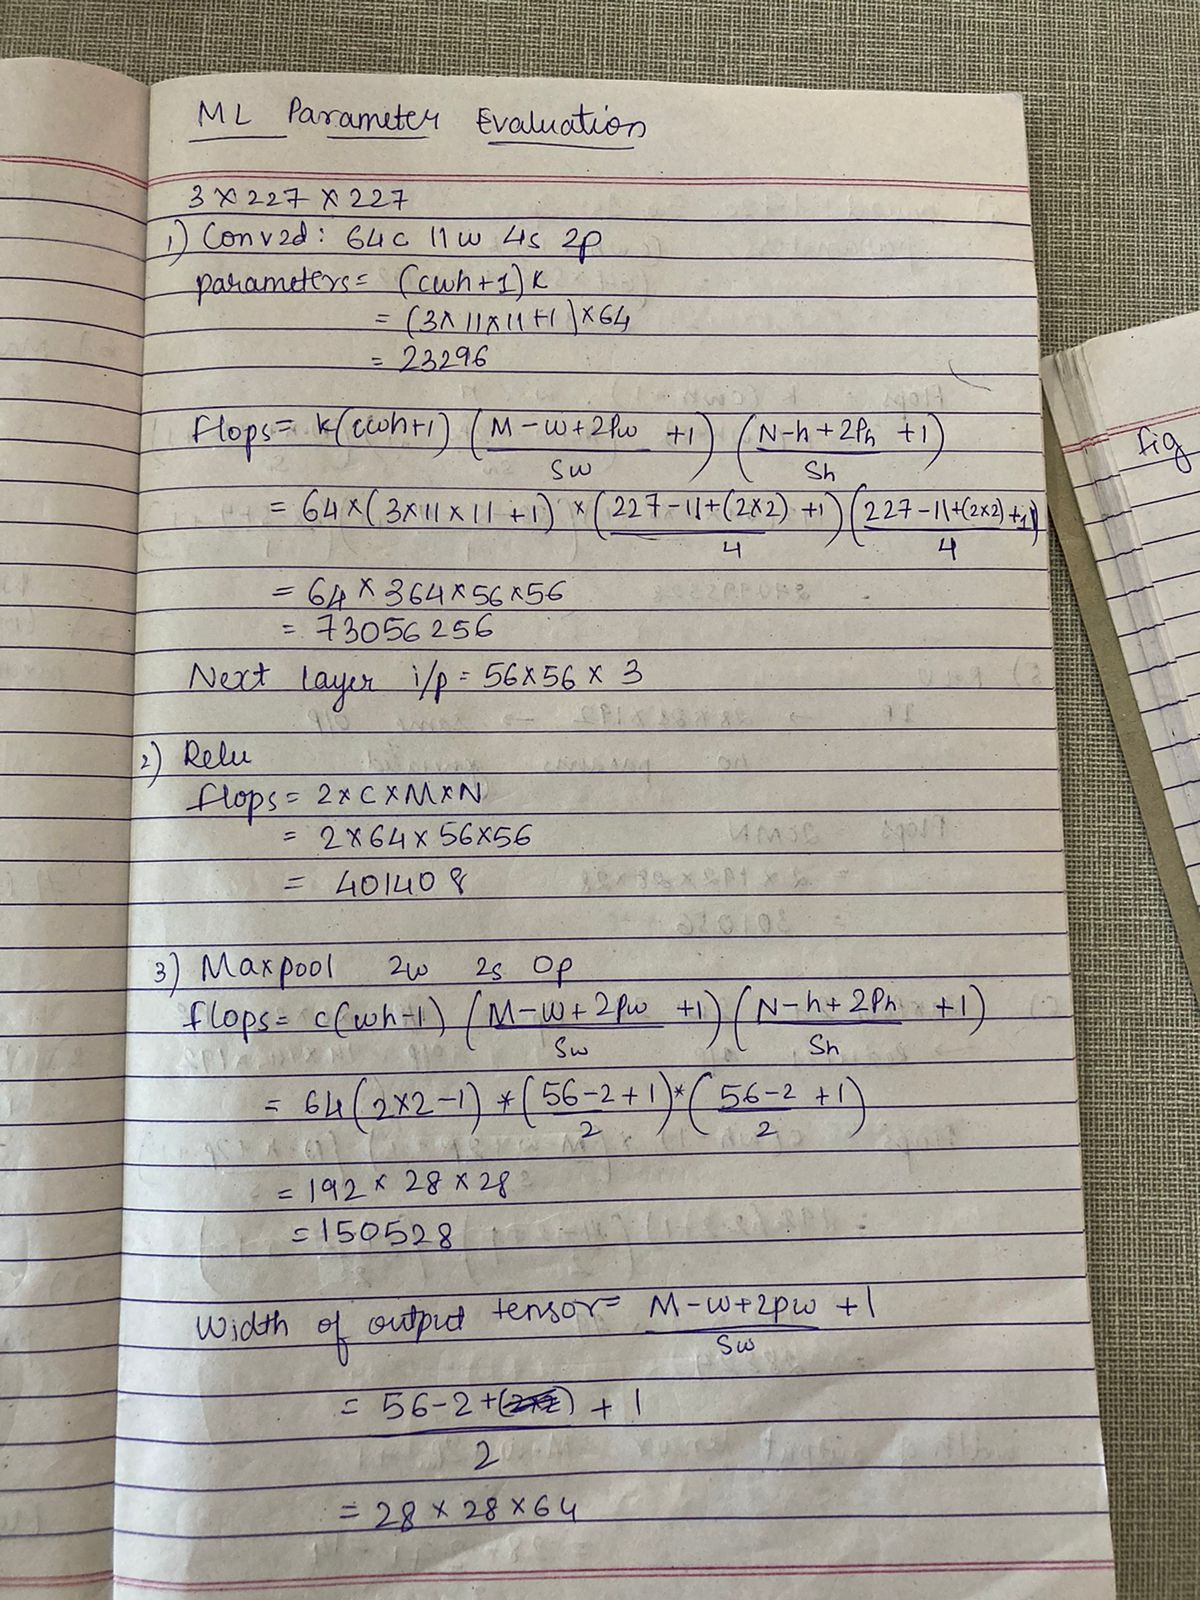 ML Parameter Evaluation
3 × 227 × 227
1) Conv2d: 64c 11w 4s 2p
parameters = (cwh+1)k
= (3×11×11+1)×64
= 23296
flops = k(cwh+1) (M-w+2Pw +1) (N-h+2Ph +1)
Sw Sh
= 64×(3×11×11+1)×(227-11+(2×2)+1)(227-11+(2×2)+1)
4 4
= 64×364×56×56
= 73056256
Next layer i/p = 56×56×3
2) Relu
flops = 2×C×M×N
= 2×64×56×56
= 401408
3) Maxpool 2w 2s 0p
flops = c(wh-1) (M-w+2Pw +1) (N-h+2Ph +1)
Sw Sh
= 64(2×2-1) * (56-2+1)*(56-2 +1)
2 2
= 192 × 28 × 28
= 150528
Width of output tensor = M-w+2pw +1
Sw
= 56-2+( ) + 1
2
= 28 × 28 × 64
fig